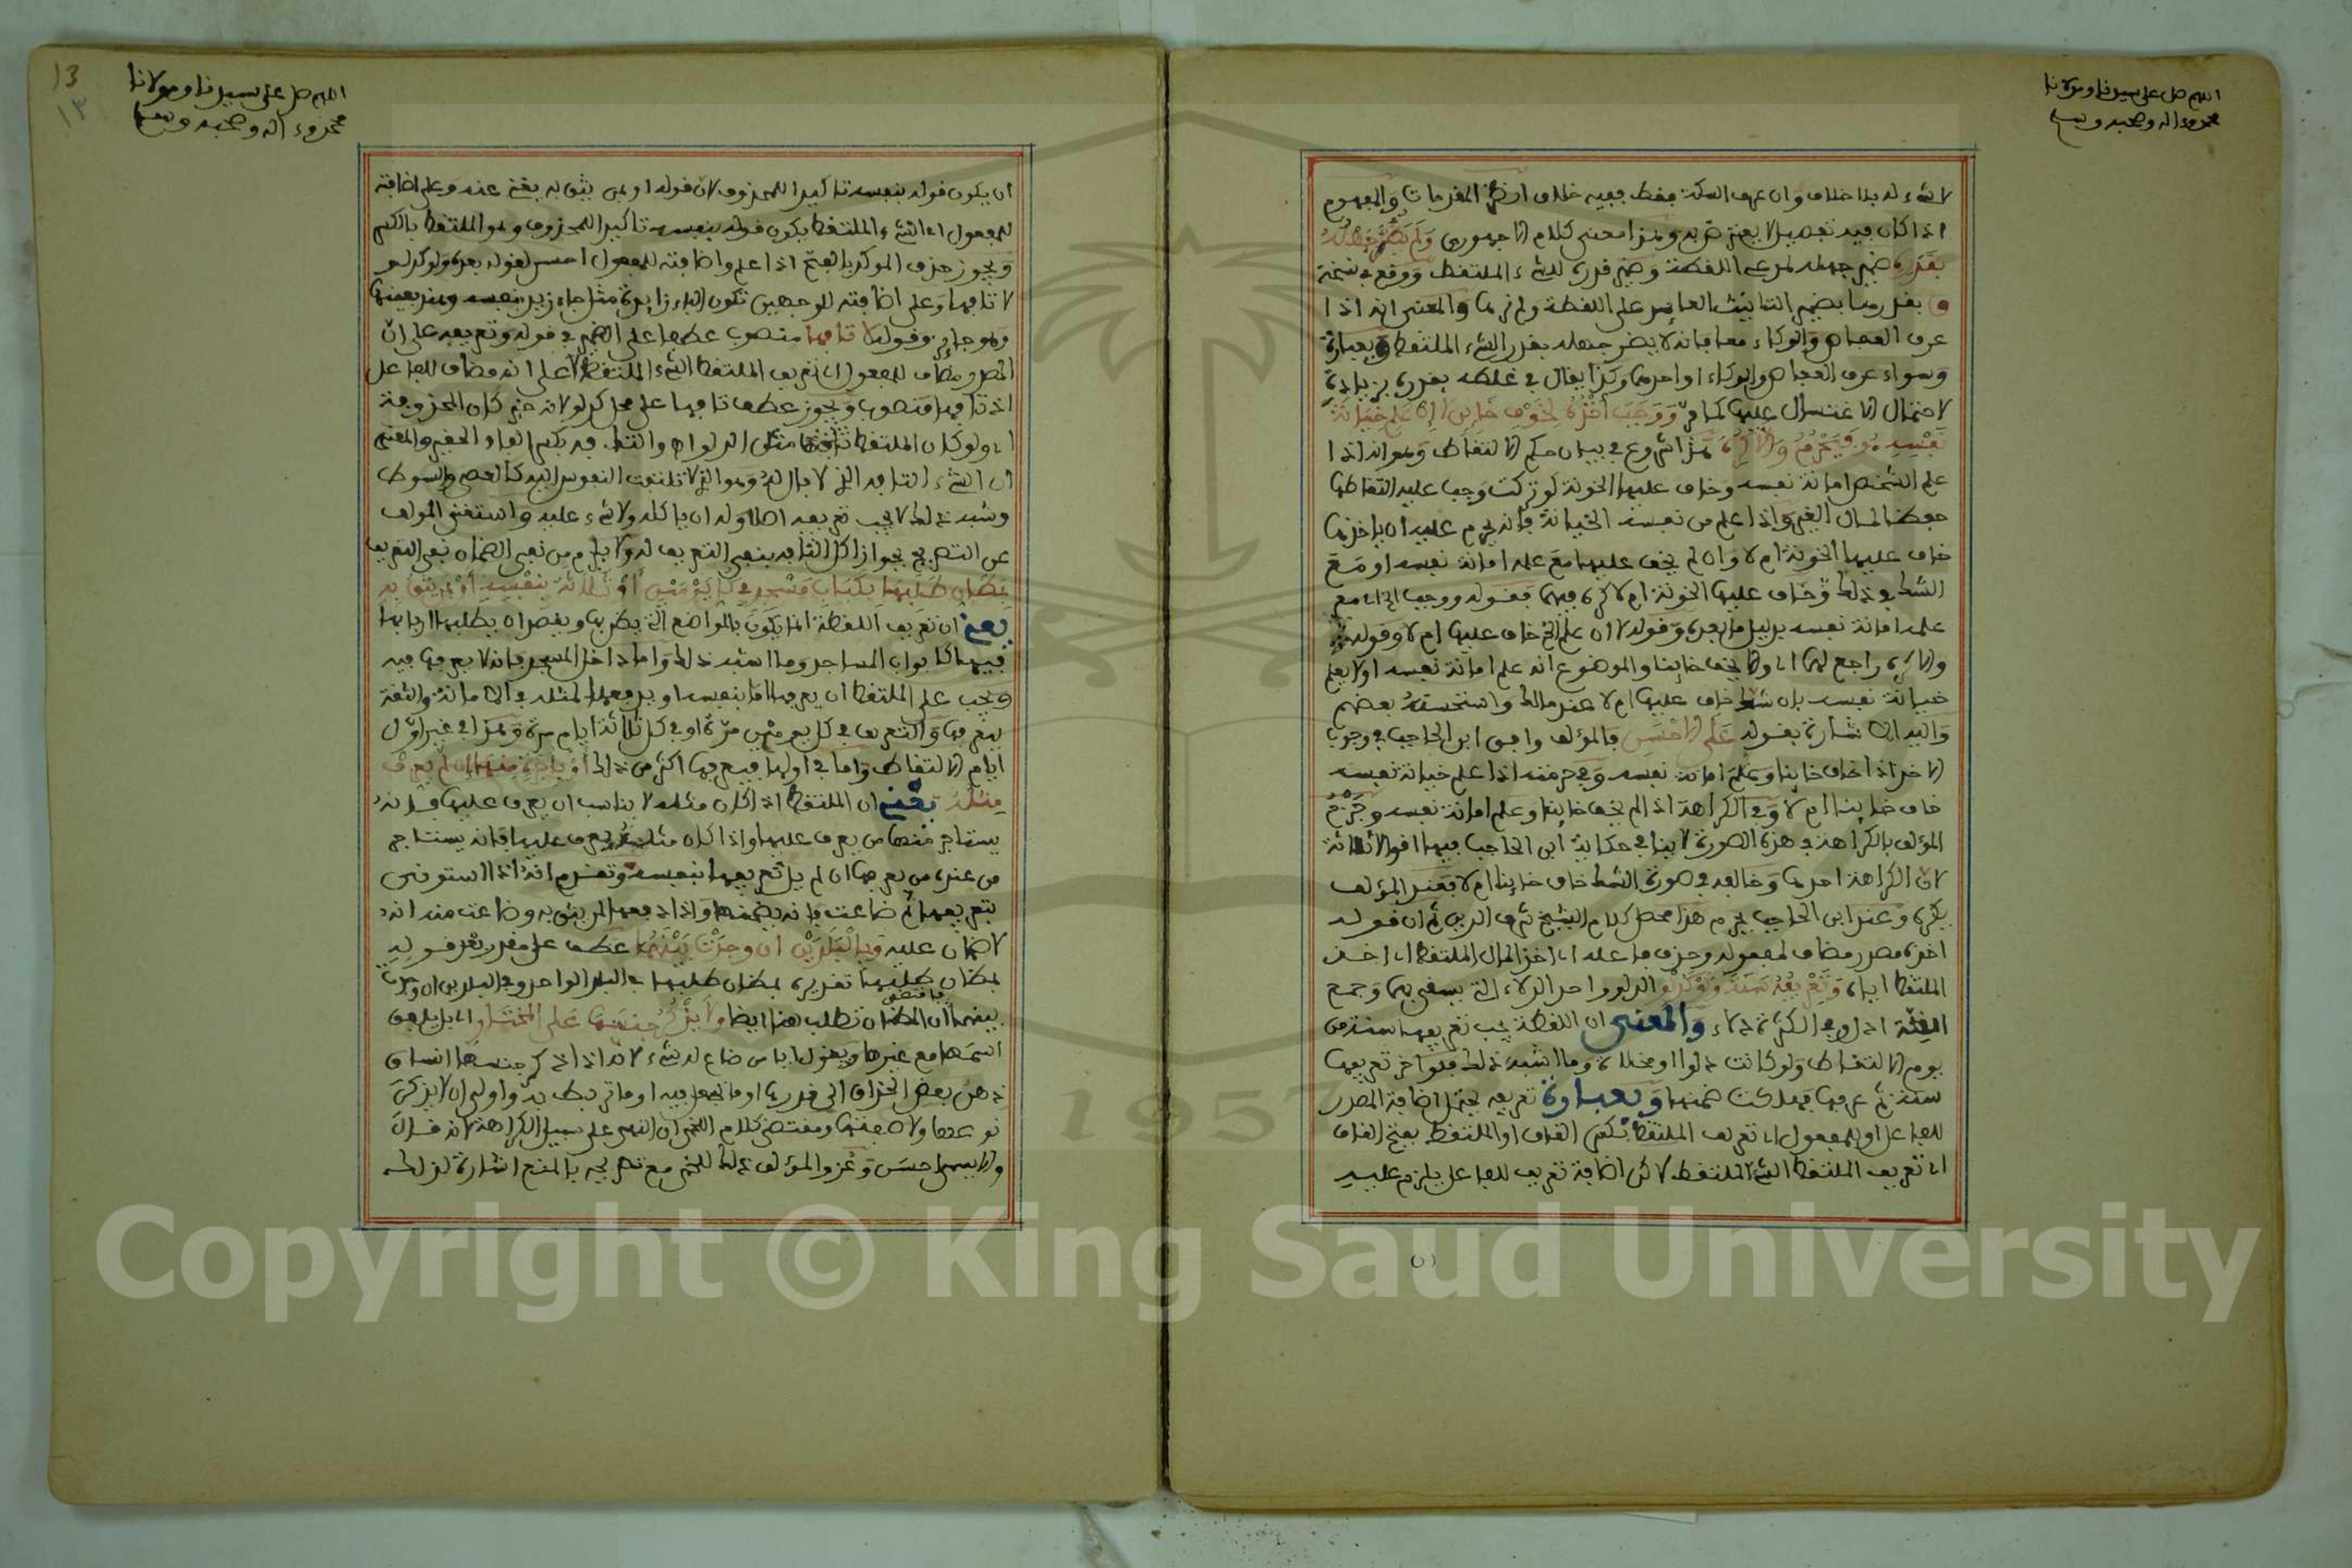 اللهم صل على سيدنا ومولانا
محمد وءاله وصحبه وسلم
لا شىء له بلا خلاف وان عرف السكة فقط ففيه خلاف انظر المقدمات والمفهوم
اذا كان فيه تفصيل لا يعترض به وهذا معنى كلام الاجهوري ولم يضر جهله
بقدره ضمير جهله لمدعي اللقطة وضمير قدره للشىء الملتقط ووقع في نسخة
بقدرها بضمير التانيث العايد على اللقطة والمعنى انه اذا
عرف العفاص والوكاء معا فانه لا يضر جهله بقدر الشىء الملتقط وبعبارة
وسواء عرف العفاص والوكاء او احدهما وكذا يقال في غلطه بقدره بزيادة
لاحتمال الاغتيال عليها كما مر ووجب اخذه لخوف خاين لا ان علم خيانة
نفسه هو فيحرم والا كره هذا شروع في بيان حكم الالتقاط وهو انه اذا
علم الشخص امانة نفسه وخاف عليها الخونة لو تركت وجب عليه التقاطها
حفظا لمال الغير واذا علم من نفسه الخيانة فانه يحرم عليه ان ياخذها
خاف عليها الخونة ام لا وان لم يخف عليها مع علمه امانة نفسه او مع
الشك في ذلك وخاف عليها الخونة ام لا كره فيهما فقوله ووجب اخذه اي مع
علمه امانة نفسه بدليل ما بعده وقوله لا ان علم اي خاف عليها ام لا وقوله
والا كره راجع لهما اي والا يخف خاينا والموضوع انه علم امانة نفسه او لا يعلم
خيانة نفسه بان شك خاف عليها ام لا عند مالك واستحسنه بعضهم
واليه الاشارة بقوله على الاحسن فالمؤلف وافق ابن الحاجب في وجوب
الاخذ اذا خاف خاينا وعلم امانة نفسه وفي حرمته اذا علم خيانة نفسه
خاف خاينا ام لا وفي الكراهة اذا لم يخف خاينا وعلم امانة نفسه وجزم
المؤلف بالكراهة في هذه الصورة لا ينافي حكاية ابن الحاجب فيها اقوالا ثلاثة
لان الكراهة احدها وخالفه في صورة الشك خاف خاينا ام لا فعند المؤلف
يكره وعند ابن الحاجب يحرم هذا محصل كلام الشيخ شرف الدين ثم ان قوله
اخذه مصدر مضاف لمفعوله وحذف فاعله اي اخذ المال الملتقط اي اخذ
الملتقط اياه وتعريفه سنة ولو كدلو الدلو واحد الدلاء التي يستقى بها وجمع
القلة ادل وفي الكثرة دلاء والمعنى ان اللقطة يجب تعريفها سنة من
يوم الالتقاط ولو كانت دلوا او مخلاة وما اشبه ذلك فلو اخر تعريفها
سنة ثم عرفها فهلكت ضمنها وبعبارة تعريفه يحتمل اضافة المصدر
للفاعل او للمفعول اي تعريف الملتقط بكسر القاف او الملتقط بفتح القاف
اي تعريف الملتقط الشىء الملتقط لاكن اضافة تعريف للفاعل يلزم عليه
13
١٣
اللهم صل على سيدنا ومولانا
محمد وءاله وصحبه وسلم
ان يكون قوله بنفسه تاكيدا للمحذوف لان قوله او بمن يثق به يغني عنه وعلى اضافته
للمفعول اي الشىء الملتقط يكون قوله بنفسه تاكيدا للمحذوف وهو الملتقط بالكسر
ويجوز حذف الموكد بالفتح اذا علم واضافته للمفعول احسن لقوله بعده ولو كدلو
لا تافها وعلى اضافته للوجهين تكون الباء زايدة مثل جاء زيد بنفسه وهند بعينها
وهو جايز وقوله لا تافها منصوب عطفا على الضمير في قوله وتعريفه على ان
المصدر مضاف للمفعول اي تعريف الملتقط الشىء الملتقط لا على انه مضاف للفاعل
اذ تافها منصوب ويجوز عطف تافها على محل كدلو لانه خبر كان المحذوفة
اي ولو كان الملتقط تافها مثل الدلو اه والتافه بكسر الفاء الحقير والمعنى
ان الشىء التافه الذي لا بال له وهو الذي لا تلتفت النفوس اليه كالعصى والسوط
وشبه ذلك لا يجب تعريفه اصلا وله ان ياكله ولا شىء عليه واستغنى المؤلف
عن التصريح بجواز اكل التافه بنفي التعريف له ولا يلزم من نفي الضمان نفي التعريف
بمظان طلبها بكباب مسجد في كل يومين او ثلاثة بنفسه او بمن يثق به
يعني ان تعريف اللقطة انما يكون بالمواضع التي يظن بها ويقصد ان يطلبها اربابها
فيها كابواب المساجد وما اشبه ذلك واما داخل المسجد فانه لا يعرفها فيه
ويجب على الملتقط ان يعرفها اما بنفسه او يدفعها لمثله في الامانة والثقة
يعرفها والتعريف في كل يومين مرة او في كل ثلاثة ايام مرة وهذا في غير اول
ايام الالتقاط واما في اولها فيعرفها اكثر من ذلك او باجرة منها ان لم يعرف
مثله يعني ان الملتقط اذا كان مثله لا يناسب ان يعرف عليها فانه
يستاجر منها من يعرف عليها واذا كان مثله يعرف عليها فانه يستاجر
من عنده من يعرفها ان لم يل تعريفها بنفسه وتقدم انه اذا استونى
بتعريفها ثم ضاعت فانه يضمنها واذا دفعها لمن يثق به وضاعت منه انه
لا ضمان عليه وبالبلدين ان وجدت بينهما عطف على مقدر بعد قوله
بمظان طلبها تقديره بمظان طلبها في البلد الواحد وفي البلدين ان وجدت
بينهما لان المظان تطلب هنا ايضا ولا يذكر جنسها على المختار اي بل يلفق
اسمها مع غيرها ويقول يا من ضاع له شىء لانه اذا ذكر جنسها انساق
ذهن بعض الحذاق الى قدرها او ما تجعل فيه او ما تربط به واولى ان لا يذكر
نوعها ولا صفتها ومقتضى كلام اللخمي ان النهي على سبيل الكراهة لانه قال
والا يسمي احسن وعزو المؤلف ذلك للخمي مع تصريحه بالمنع اشارة لذلك